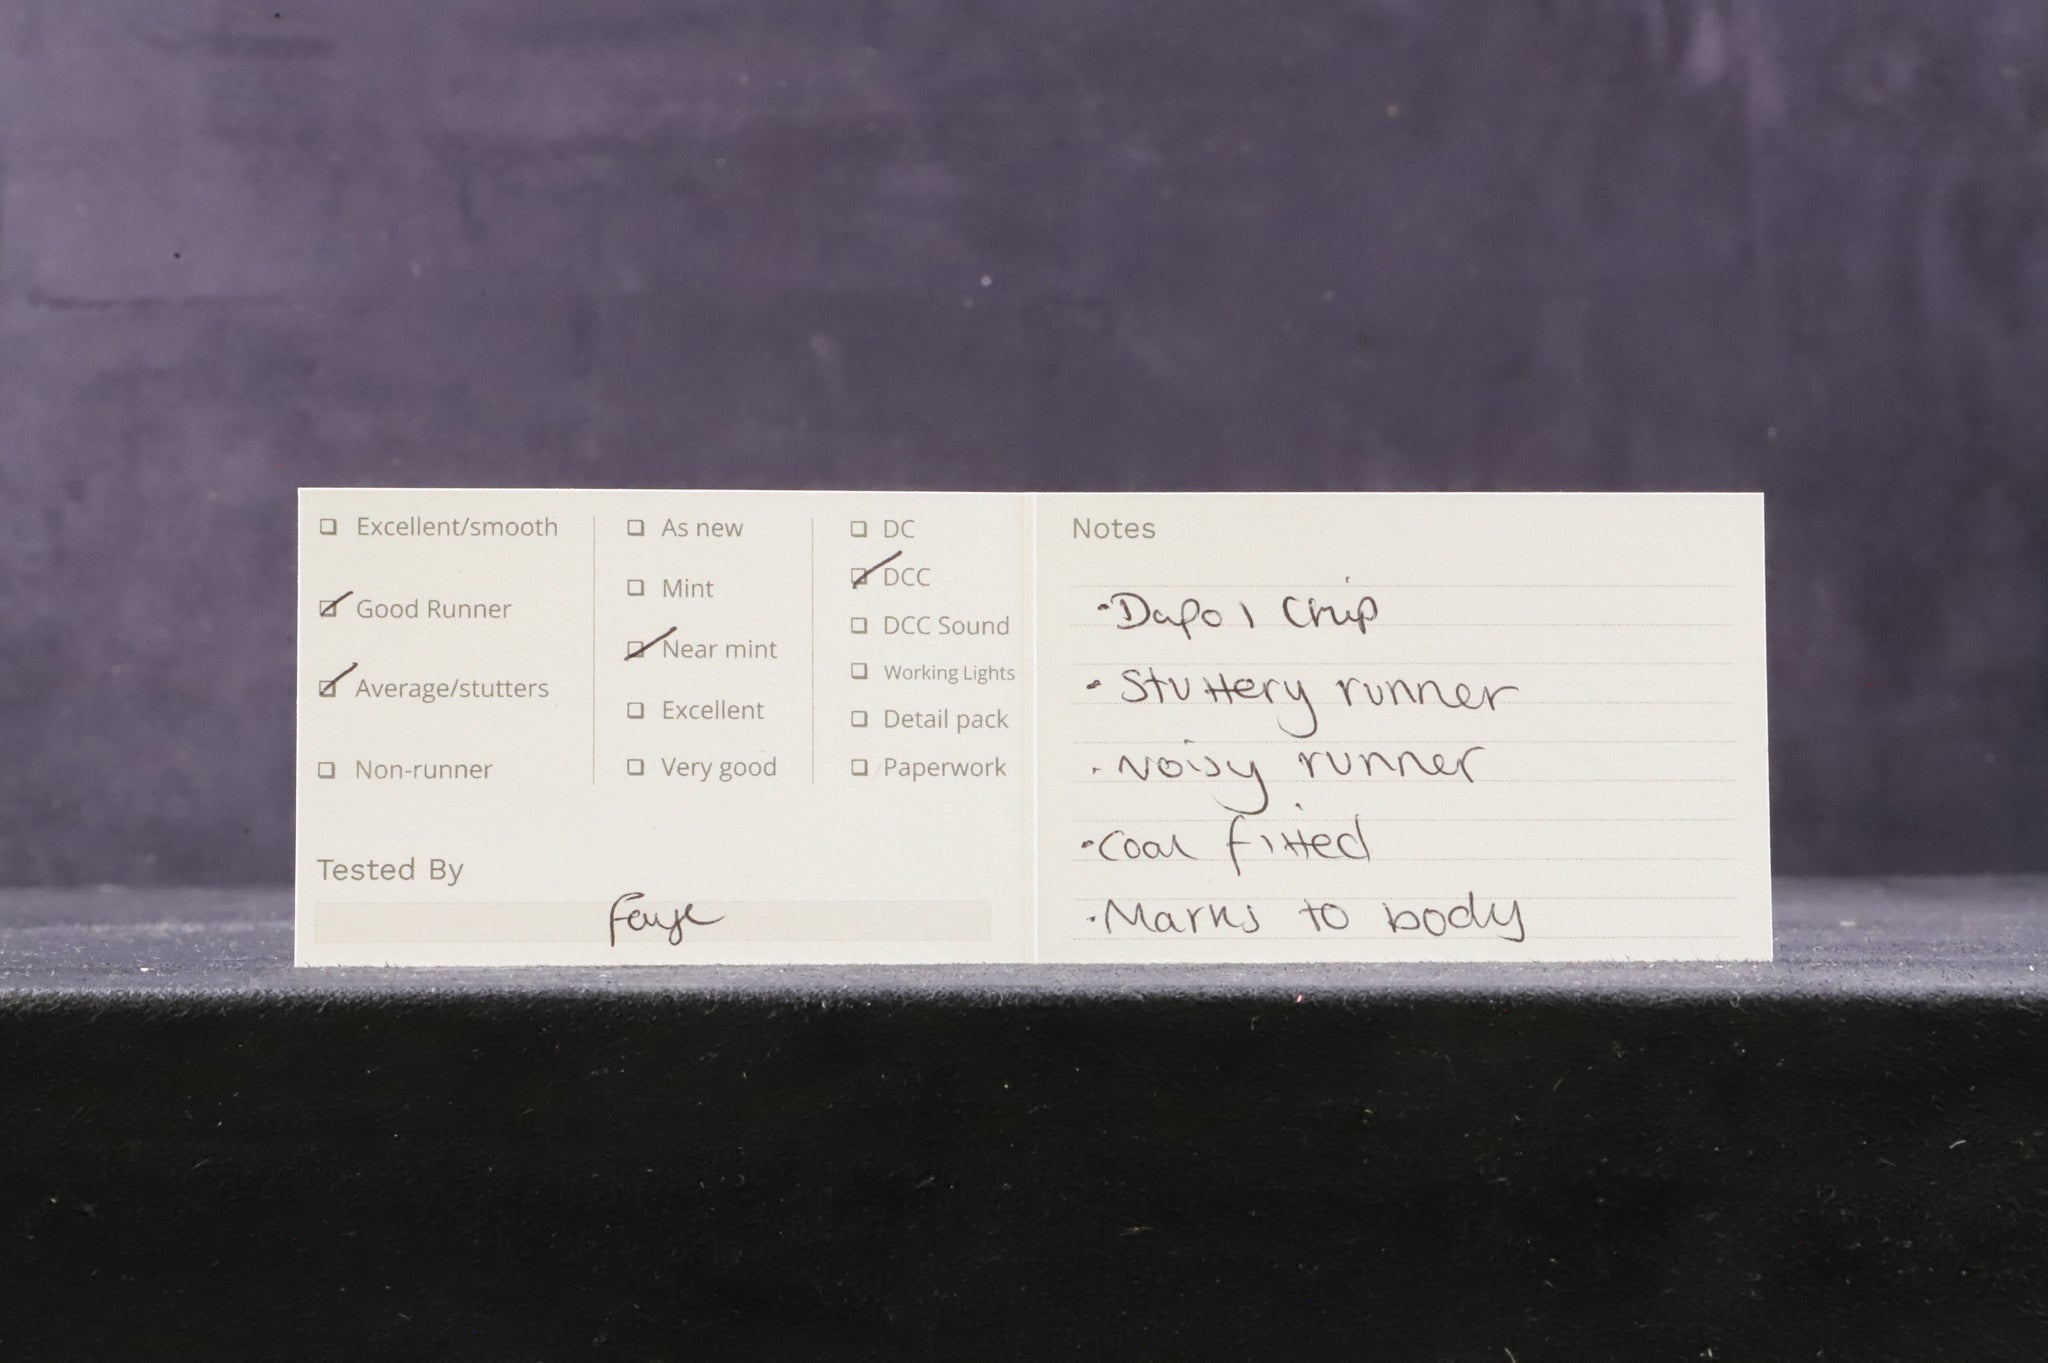 Excellent/smooth
Good Runner
Average/stutters
Non-runner
As new
Mint
Near mint
Excellent
Very good
DC
DCC
DCC Sound
Working Lights
Detail pack
Paperwork
Tested By
Faye
Notes
• Dapol Chip
• Stuttery runner
• Noisy runner
• Coal fitted
• Marks to body